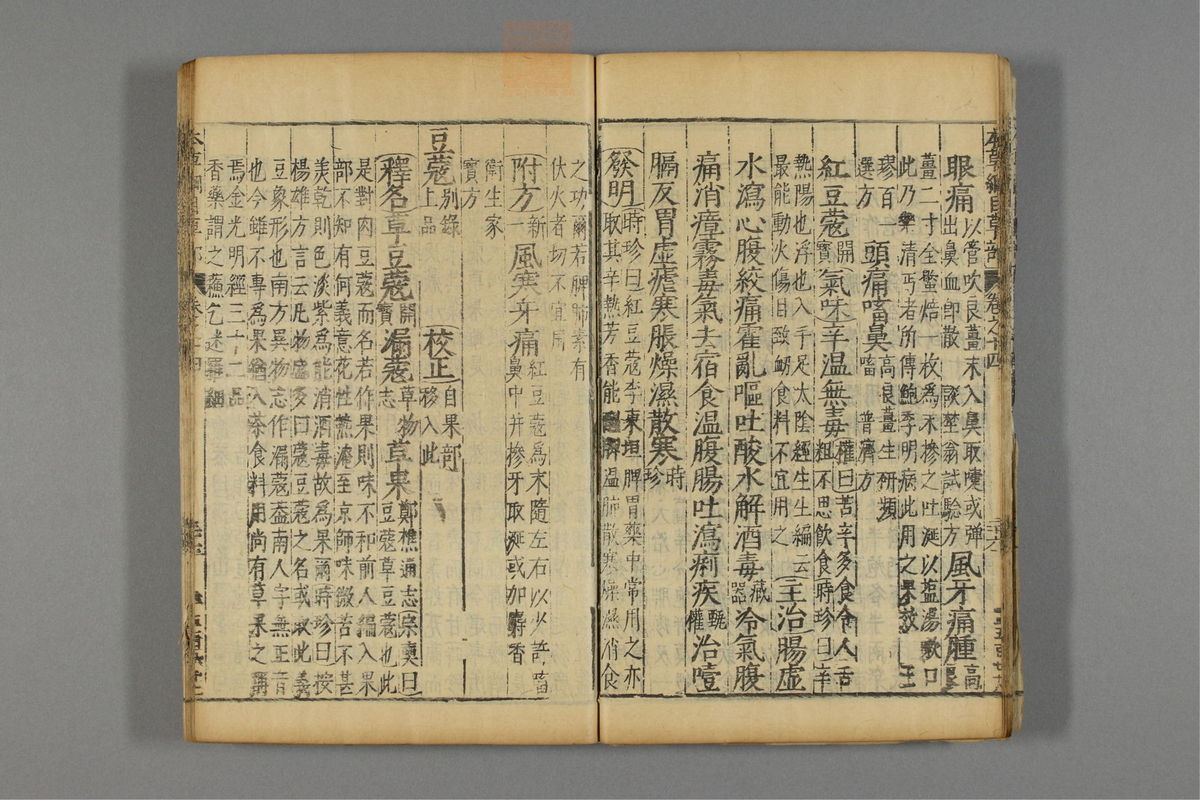 本草綱目草部 卷之十四
眼痛 以管吹良薑末入鼻取嚏或彈出鼻血即散 談埜翁試驗方 風牙痛腫 高良
薑二寸全蝎焙一枚為末摻之吐涎以鹽湯漱口此乃樂清丐者所傳鮑季明病此用之果效 王
璆百一選方 頭痛㗜鼻 高良薑生研頻㗜 普濟方
紅豆蔻 開寳 氣味 辛温無毒 權曰苦辛多食令人舌粗不思飲食時珍曰辛
熱陽也浮也入手足太陰經生生編云最能動火傷目致衂食料不宜用之 主治 腸虛
水瀉心腹絞痛霍亂嘔吐酸水解酒毒 藏器 冷氣腹
痛消瘴霧毒氣去宿食温腹腸吐瀉痢疾 甄權 治噎
膈反胃虛瘧寒脹燥濕散寒 時珍
發明 時珍曰紅豆蔻李東垣脾胃藥中常用之亦取其辛熱芳香能醒脾温肺散寒燥濕消食
之功爾若脾肺素有伏火者切不宜用
附方 新一 風寒牙痛 紅豆蔻為末隨左右以少許㗜鼻中并摻牙取涎或加麝香
衛生家寳方
豆蔻 別錄上品 校正 自果部移入此
釋名 草豆蔻 開寳 漏蔻 物志 草果 鄭樵通志 宗奭曰豆蔻草豆蔻也此
是對肉豆蔻而名若作果則味不和前人編入果部不知有何義意花性熱淹至京師味微苦不甚
美乾則色淡紫為能消酒毒故為果爾時珍曰按楊雄方言云凡物盛多曰蔻豆蔻之名或取此義
豆象形也南方異物志作漏蔻蓋南人字無正音也今雖不專為果猶入茶食料用尚有草果之稱
焉金光明經三十二品香藥謂之蘇乞迷羅細
本草綱目草部 卷之十四